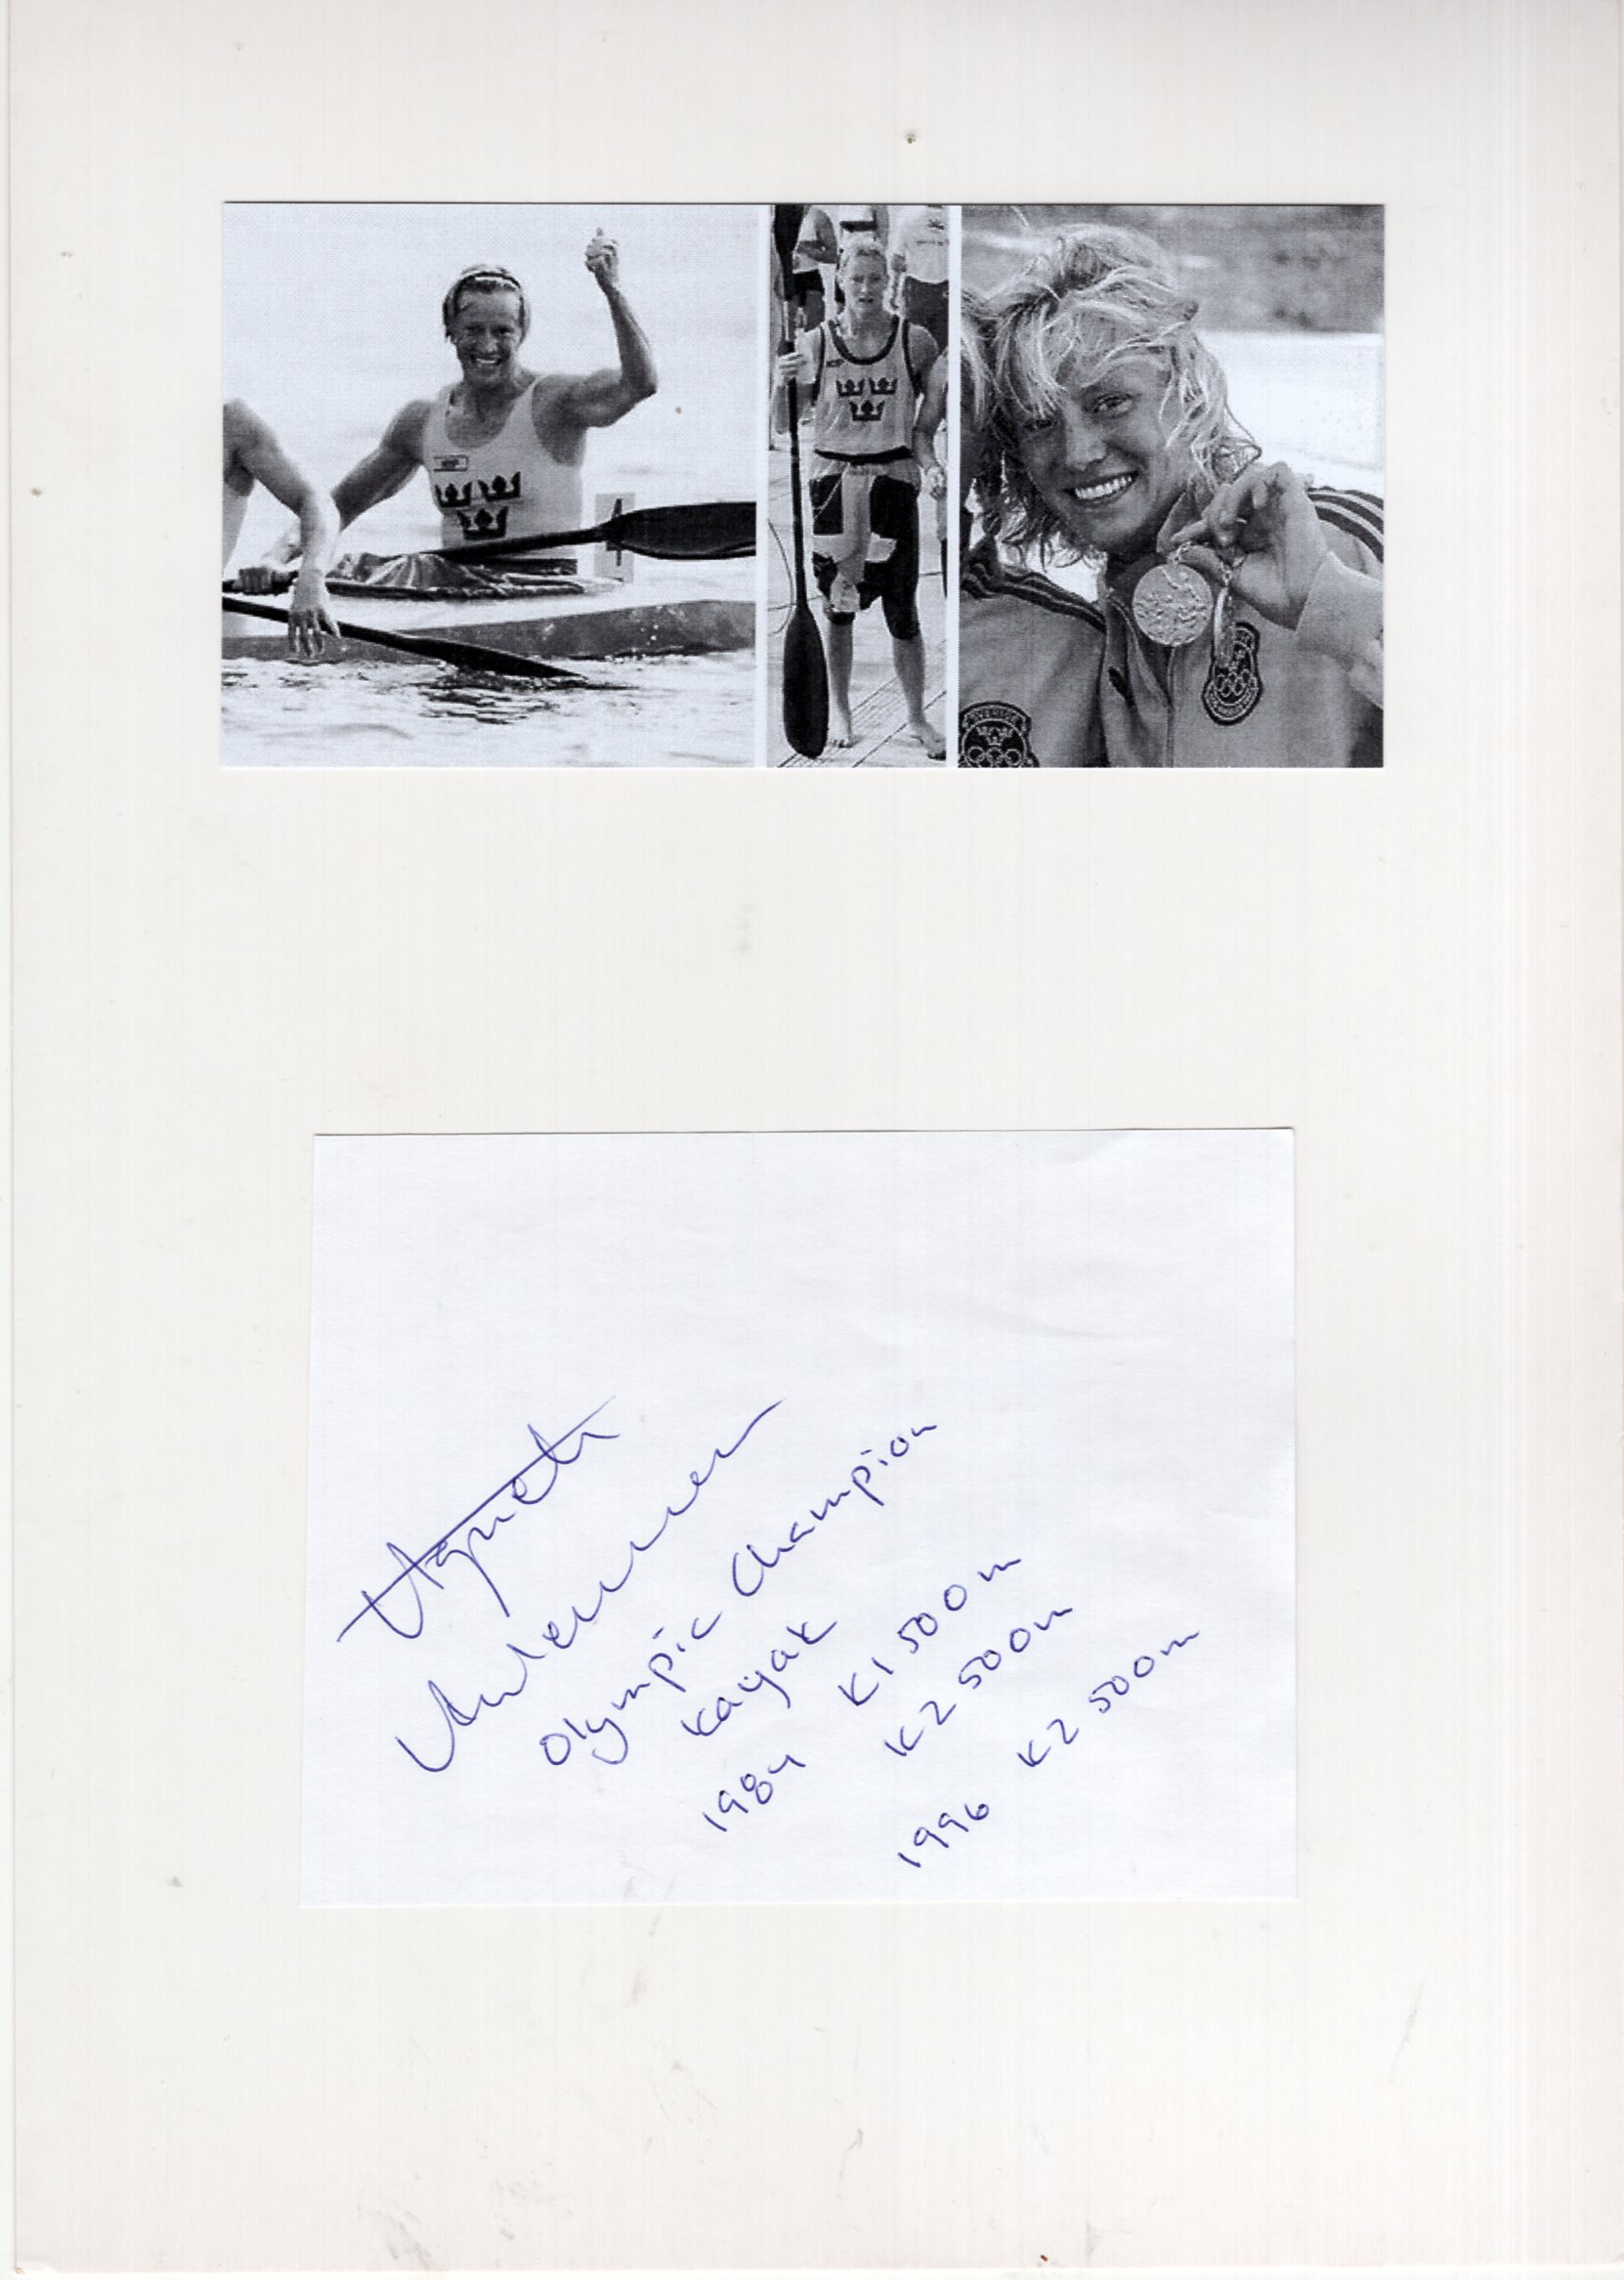 SVERIGE
Agneta
Andersson
Olympic Champion
Kayak
1984 K1 500m
K2 500m
1996 K2 500m